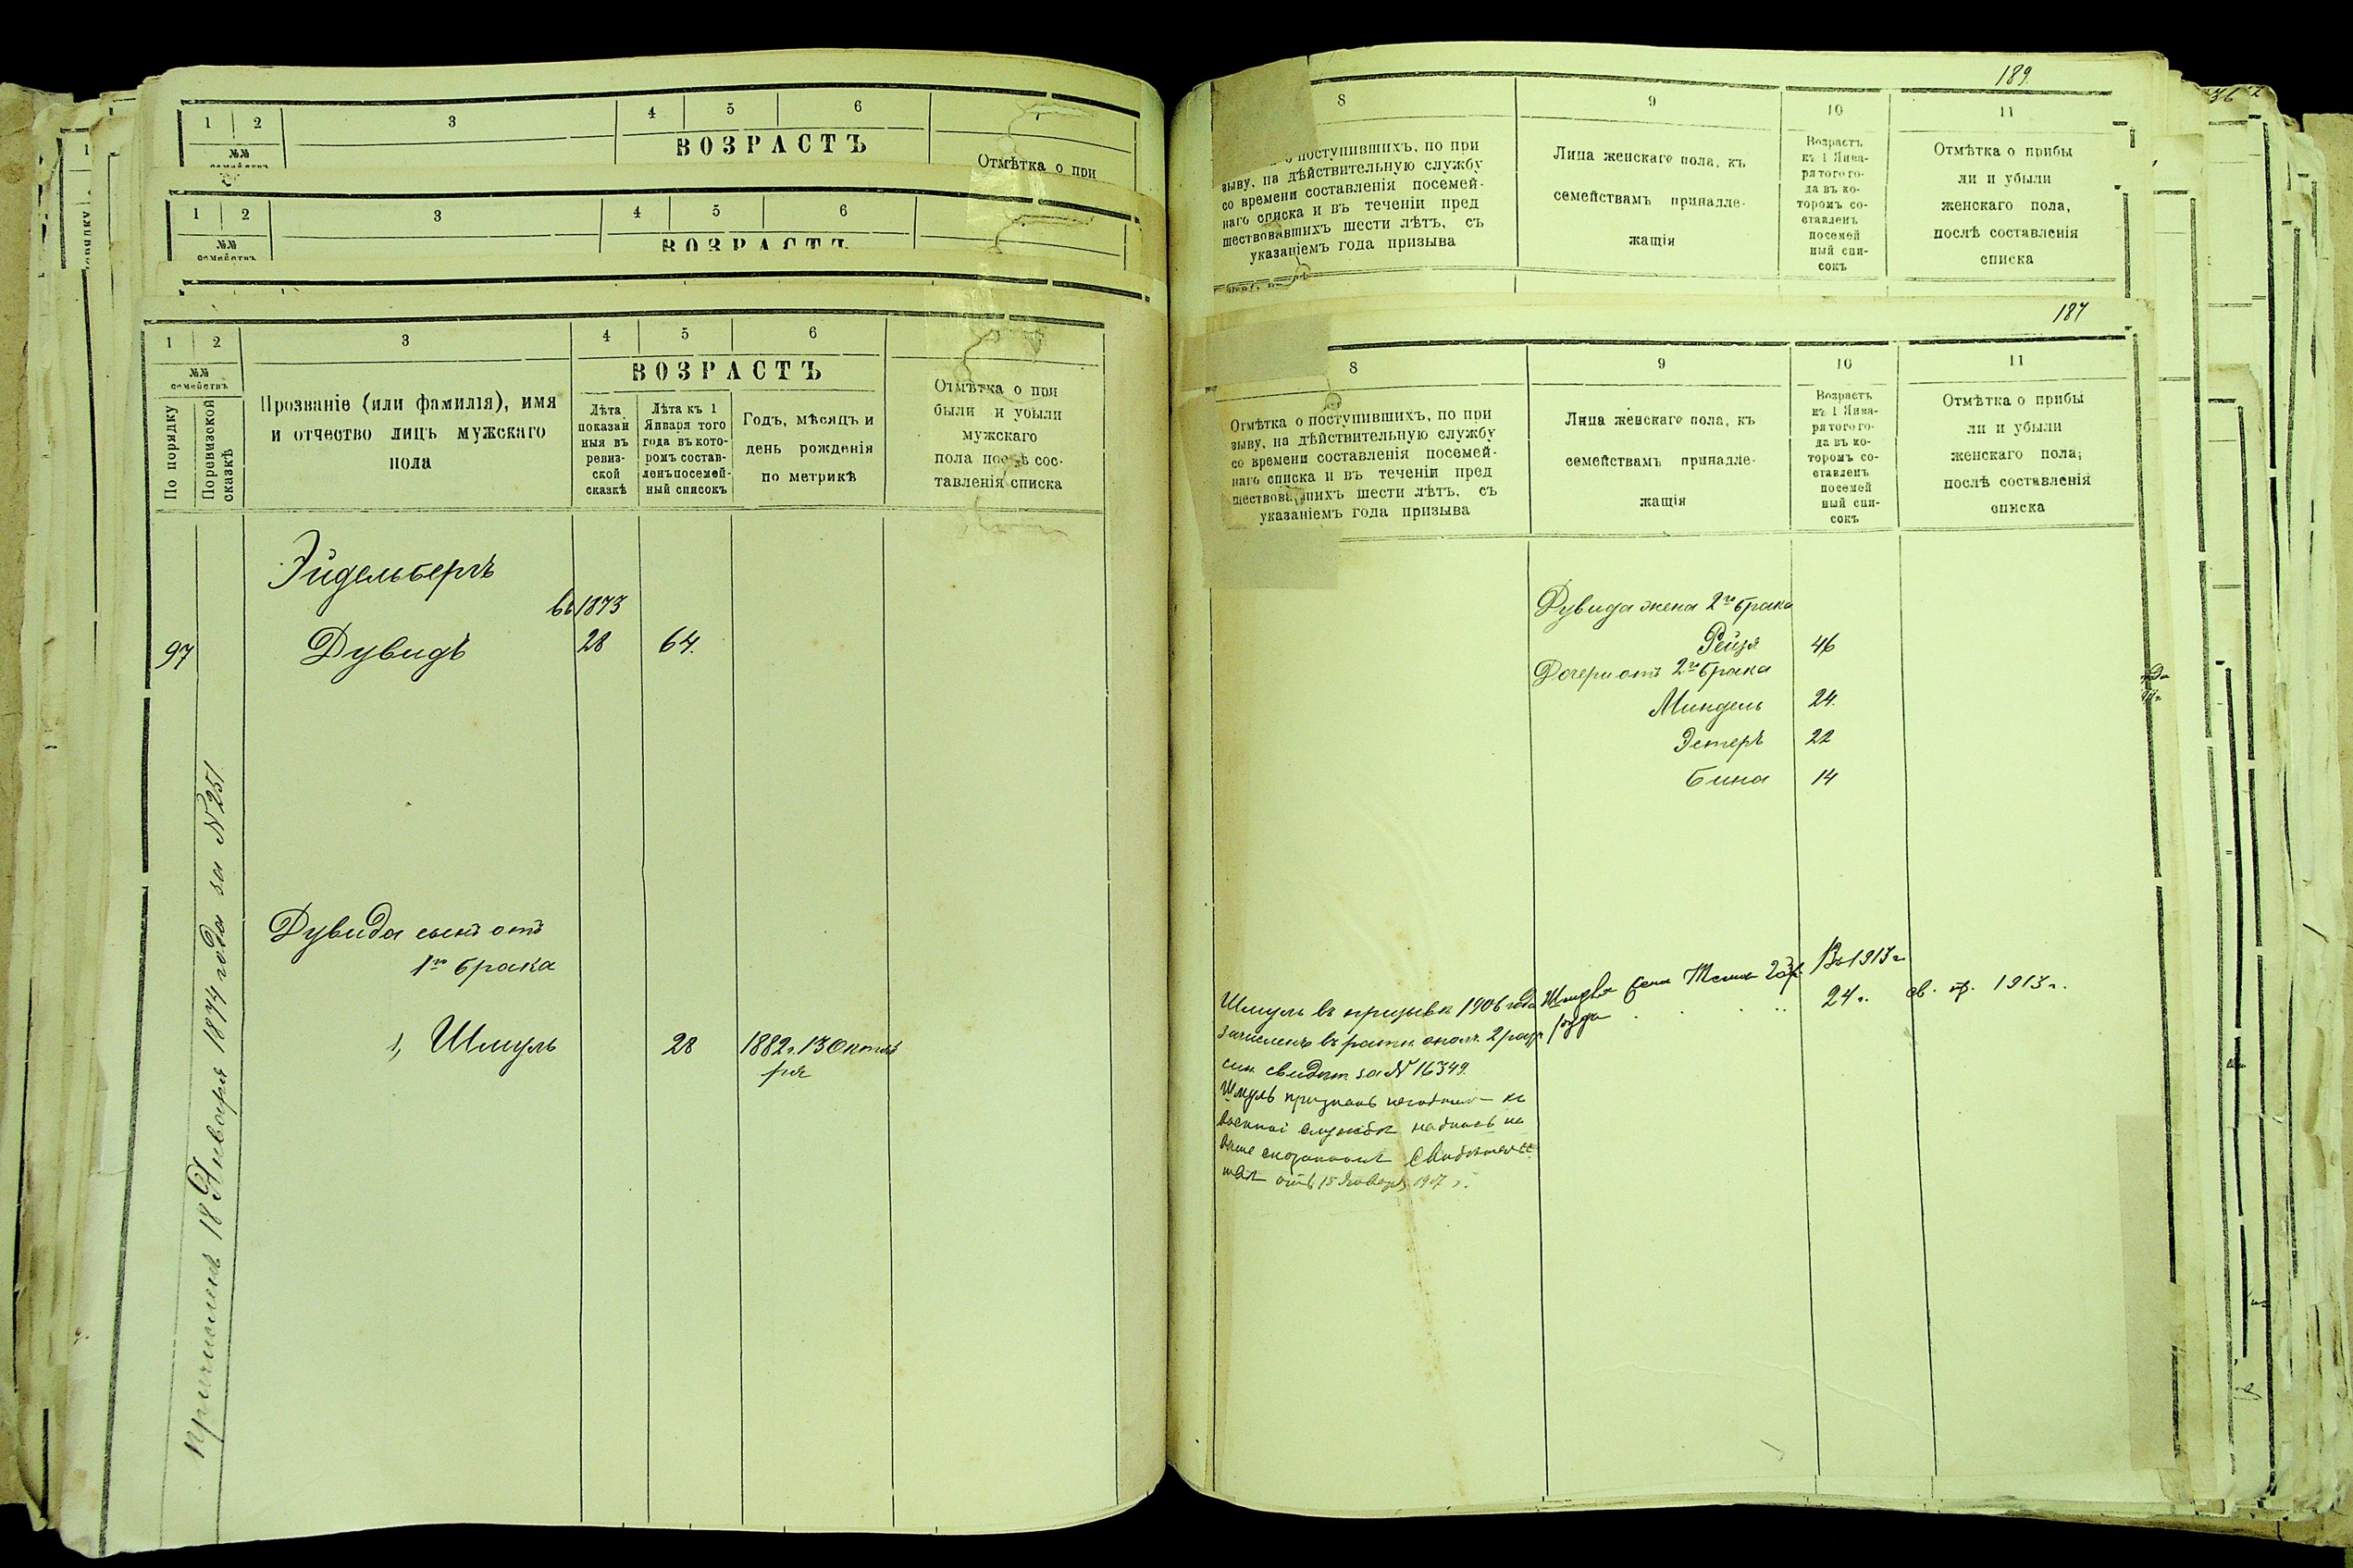 1 2 3 4 5 6
№№
ВОЗРАСТЪ
Отмѣтка о при
1 2 3 4 5 6
№№
ВОЗРАСТЪ
1 2 3 4 5 6
№№
семействъ
По порядку
Поревизской
сказкѣ
Прозваніе (или фамилія), имя
и отчество лицъ мужскаго
пола
ВОЗРАСТЪ
Лѣта
показан
ныя въ
ревиз-
ской
сказкѣ
Лѣта къ 1
Января того
года въ кото-
ромъ состав-
ленъ посемей-
ный списокъ
Годъ, мѣсяцъ и
день рожденія
по метрикѣ
Отмѣтка о при
были и убыли
мужскаго
пола послѣ сос-
тавленія списка
Эйдельбергъ
въ 1873
97 Дувидъ 28 64.
Причисленъ 18 Января 1874 года за №251
Дувида сынъ отъ
1го брака
1, Шмуль 28 1882 г. 13 Октяб
ря
189.
8 9 10 11
поступившихъ, по при
зыву, на дѣйствительную службу
со времени составленія посемей-
наго списка и въ теченіи пред
шествовавшихъ шести лѣтъ, съ
указаніемъ года призыва
Лица женскаго пола, къ
семействамъ принадле-
жащія
Возрастъ
къ 1 Янва-
ря того го-
да въ ко-
торомъ со-
ставленъ
посемей
ный спи-
сокъ
Отмѣтка о прибы
ли и убыли
женскаго пола,
послѣ составленія
списка
187
8 9 10 11
Отмѣтка о поступившихъ, по при
зыву, на дѣйствительную службу
со времени составленія посемей-
наго списка и въ теченіи пред
шествовавшихъ шести лѣтъ, съ
указаніемъ года призыва
Лица женскаго пола, къ
семействамъ принадле-
жащія
Возрастъ
къ 1 Янва-
ря того го-
да въ ко-
торомъ со-
ставленъ
посемей
ный спи-
сокъ
Отмѣтка о прибы
ли и убыли
женскаго пола,
послѣ составленія
списка
Дувида жена 2го брака
Рейзя 46
Дочери отъ 2го брака
Миндель 24.
Эстеръ 22
Бина 14
Шмуль въ призывъ 1906 года
зачисленъ въ ратн. ополч. 2 разр
свидѣт. за № 16349.
Шмуль признанъ негоднымъ къ
военной службѣ надпись на
отъ 15 Января 1907 г.
жена
Въ 1913 г.
24 г. св. 1913 г.